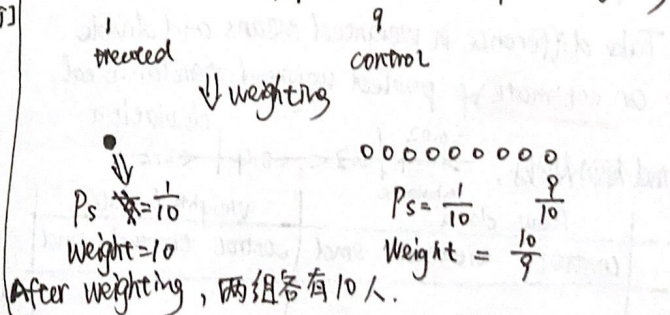 例]
1 9
treated control
⇓ weighting
Ps = 1/10 Ps = 1/10 9/10
weight=10 Weight = 10/9
After weighting, 两组各有10人.